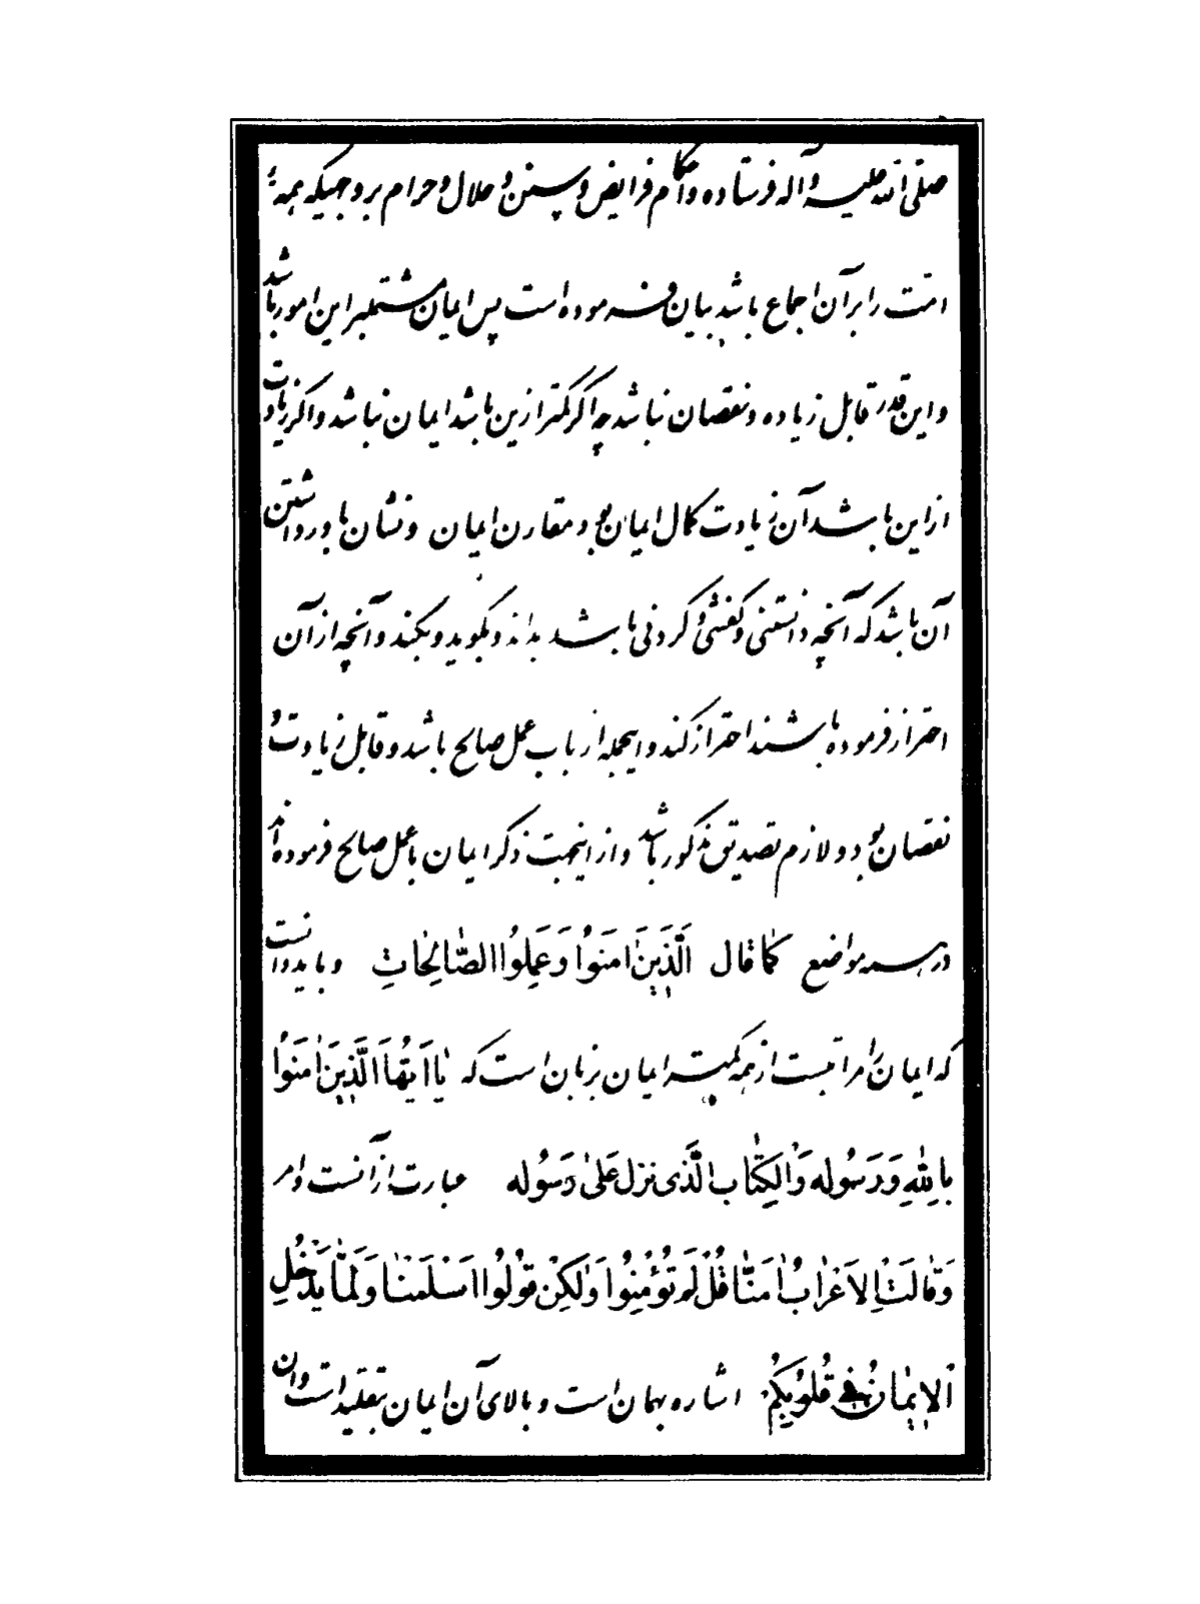 صلی الله علیه و آله فرستاده و احکام فرایض و سنن و حلال و حرام بر وجهیکه همهٔ
امت را بر آن اجماع باشد بیان فرموده است پس ایمان مشتملبر این امور باشد
و این قدر قابل زیاده و نقصان نباشد چه اگر کمتر ازین باشد ایمان نباشد و اگر زیادت
از این باشد آن زیادت کمال ایمان بود مقارن ایمان و نشان باور داشتن
آن باشد که آنچه دانستنی و گفتنی و کردنی باشد بداند و بگوید و بکند و آنچه از آن
احتراز فرموده باشند احتراز کند و اینجمله از باب عمل صالح باشد و قابل زیادت و
نقصان بود و لازم تصدیق مذکور باشد و از اینجهت ذکر ایمان با عمل صالح فرموده‌اند
در همه مواضع کما قال اَلَّذینَ امَنَوُا وَعَمِلُوا الصّالِحاتِ و باید دانست
که ایمان را مراتبست از همه کمتر ایمان بزبان است که یا اَیُّهَا اَلَّذینَ امَنَوُا
بِاللهِ وَ رَسُولِه وَالکِتاب الَّذی نزل عَلی رَسُوله عبارت از آنست و امر
وَقالَتِ الاَعْرابُ امَنّا قُلْ لَم تُؤمِنُوا وَلکِنْ قُولُوا اَسْلَمْنا وَلَمّا یَدْخُلِ
اَلاِیْمانُ فی قُلُوبِکُمْ اشاره بهمان است و بالای آن ایمان بتقلید است و آن